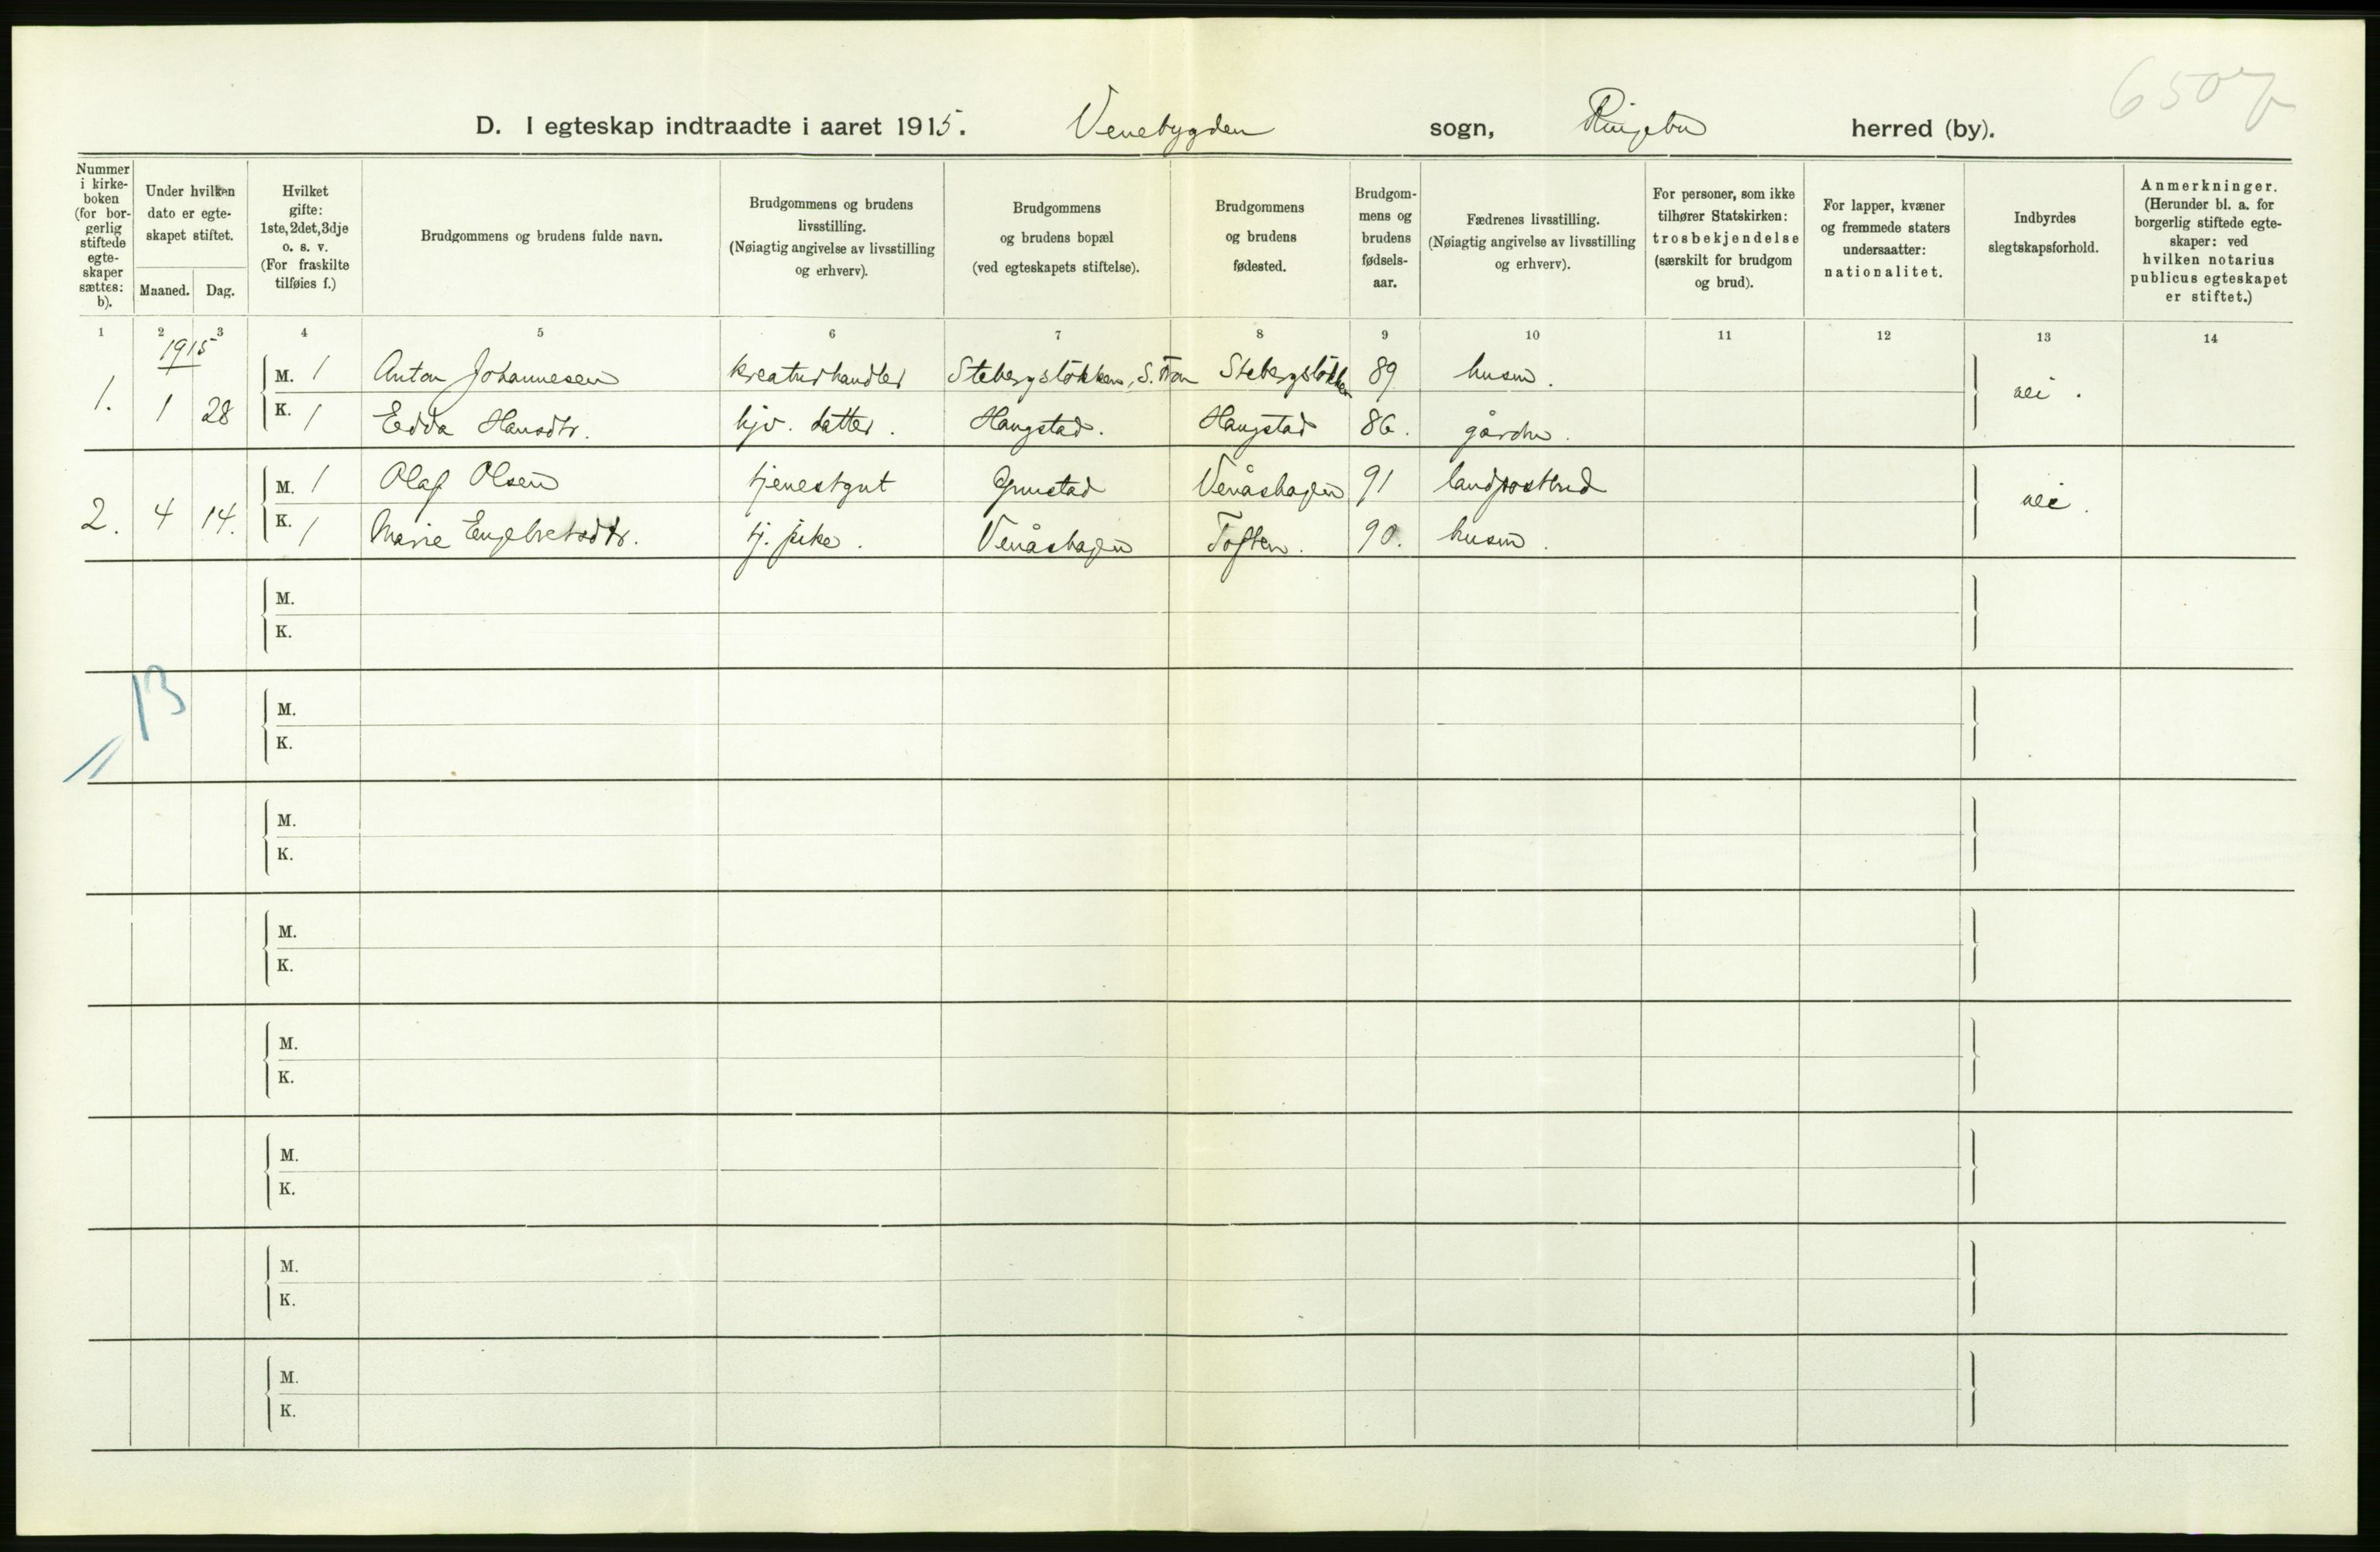 6507
D. I egteskap indtraadte i aaret 1915. Venebygden sogn, Ringebu herred (by).
Nummer i kirke-boken (for bor-gerlig stiftede egte-skaper sættes: b).
Under hvilken dato er egte-skapet stiftet.
Maaned. Dag.
Hvilket gifte: 1ste, 2det, 3dje o. s. v. (For fraskilte tilføies f.)
Brudgommens og brudens fulde navn.
Brudgommens og brudens livsstilling. (Nøiagtig angivelse av livsstilling og erhverv).
Brudgommens og brudens bopæl (ved egteskapets stiftelse).
Brudgommens og brudens fødested.
Brudgom-mens og brudens fødsels-aar.
Fædrenes livsstilling. (Nøiagtig angivelse av livsstilling og erhverv).
For personer, som ikke tilhører Statskirken: trosbekjendelse (særskilt for brudgom og brud).
For lapper, kvæner og fremmede staters undersaatter: nationalitet.
Indbyrdes slegtskapsforhold.
Anmerkninger. (Herunder bl. a. for borgerlig stiftede egte-skaper: ved hvilken notarius publicus egteskapet er stiftet.)
1 2 3 4 5 6 7 8 9 10 11 12 13 14
1915
M. 1 Anton Johannesen kreaturhandler Stebergsløkken, S. Fron Stebergsløkken 89 husm.
1. 1 28 nei.
K. 1 Edda Hansdtr. hjv. datter. Haugstad. Haugstad 86. gårdbr.
M. 1 Olaf Olsen tjenestgut Venåshagen 91 landpostbud
2. 4 14. nei.
K. 1 Marie Engebretsdtr. tj. pike. Venåshagen Toften. 90. husm.
M.
K.
13
M.
K.
M.
K.
M.
K.
M.
K.
M.
K.
M.
K.
M.
K.